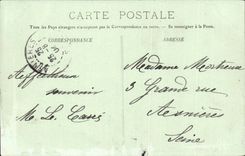 CARTE POSTALE
Tous les Pays étrangers n'acceptent pas la Correspondance au recto. - Se renseigner à la Poste.
CORRESPONDANCE
ADRESSE
Affectueux
souvenir
M. Le
Madame
3 Grande rue
Asnières
Seine